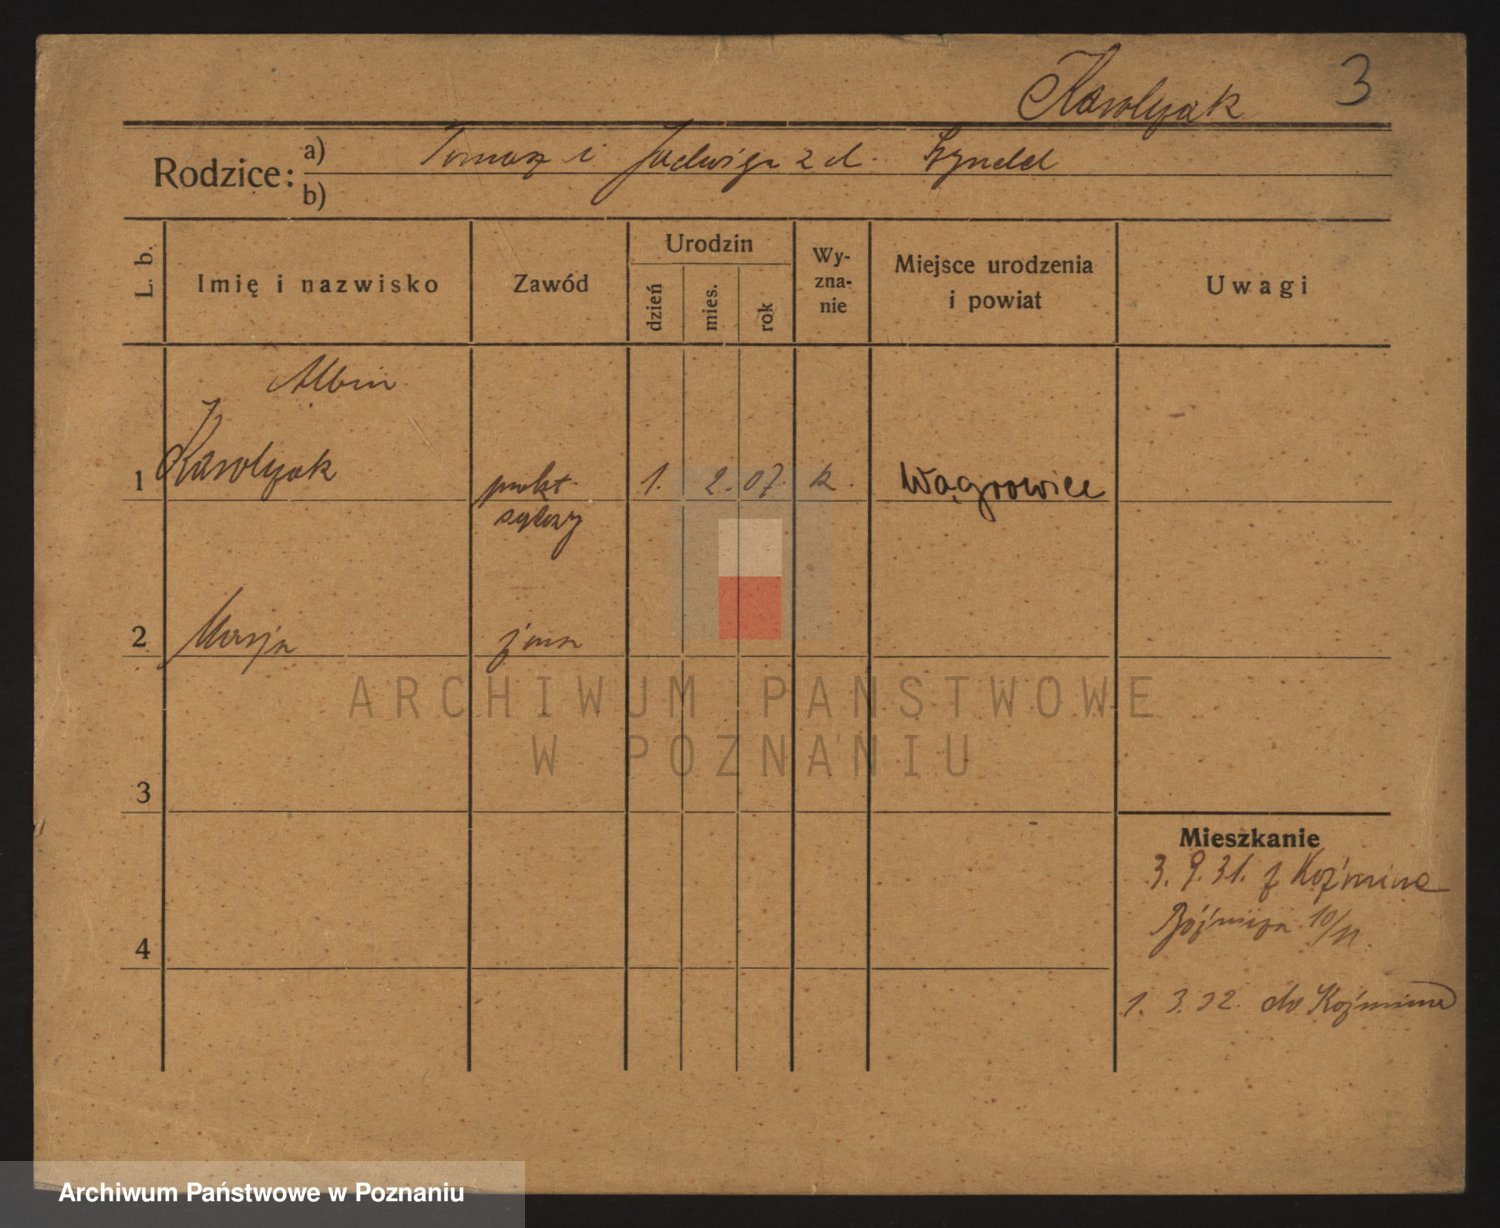 Karolczak 3
Rodzice: a) Tomasz i Jadwiga z d.
b)
L. b. Imię i nazwisko Zawód Urodzin dzień mies. rok Wy-zna-nie Miejsce urodzenia i powiat Uwagi
Albin
1 Karolczak prakt. 1. 2. 07. k. Wągrowiec
sądowy
2 Marja żona
ARCHIWUM PAŃSTWOWE
W POZNANIU
3
Mieszkanie
3. 9. 31. z Koźmina
10/11.
4
1. 3. 32. do Koźmina
Archiwum Państwowe w Poznaniu